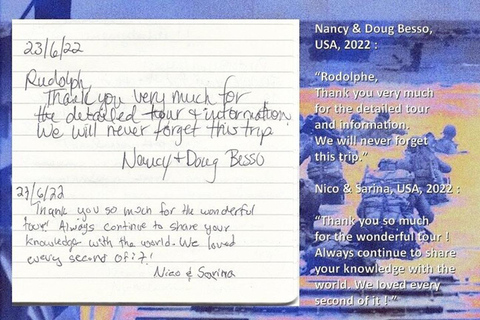 23/6/22
Rudolph,
Thank you very much for
the detailed tour & information.
We will never forget this trip.
Nancy + Doug Besso
27/6/22
Thank you so much for the wonderful
tour! Always continue to share your
knowledge with the world. We loved
every second of it!
Nico & Sarina
Nancy & Doug Besso,
USA, 2022 :
“Rodolphe,
Thank you very much
for the detailed tour
and information.
We will never forget
this trip.”
Nico & Sarina, USA, 2022 :
“Thank you so much
for the wonderful tour !
Always continue to share
your knowledge with the
world. We loved every
second of it !”